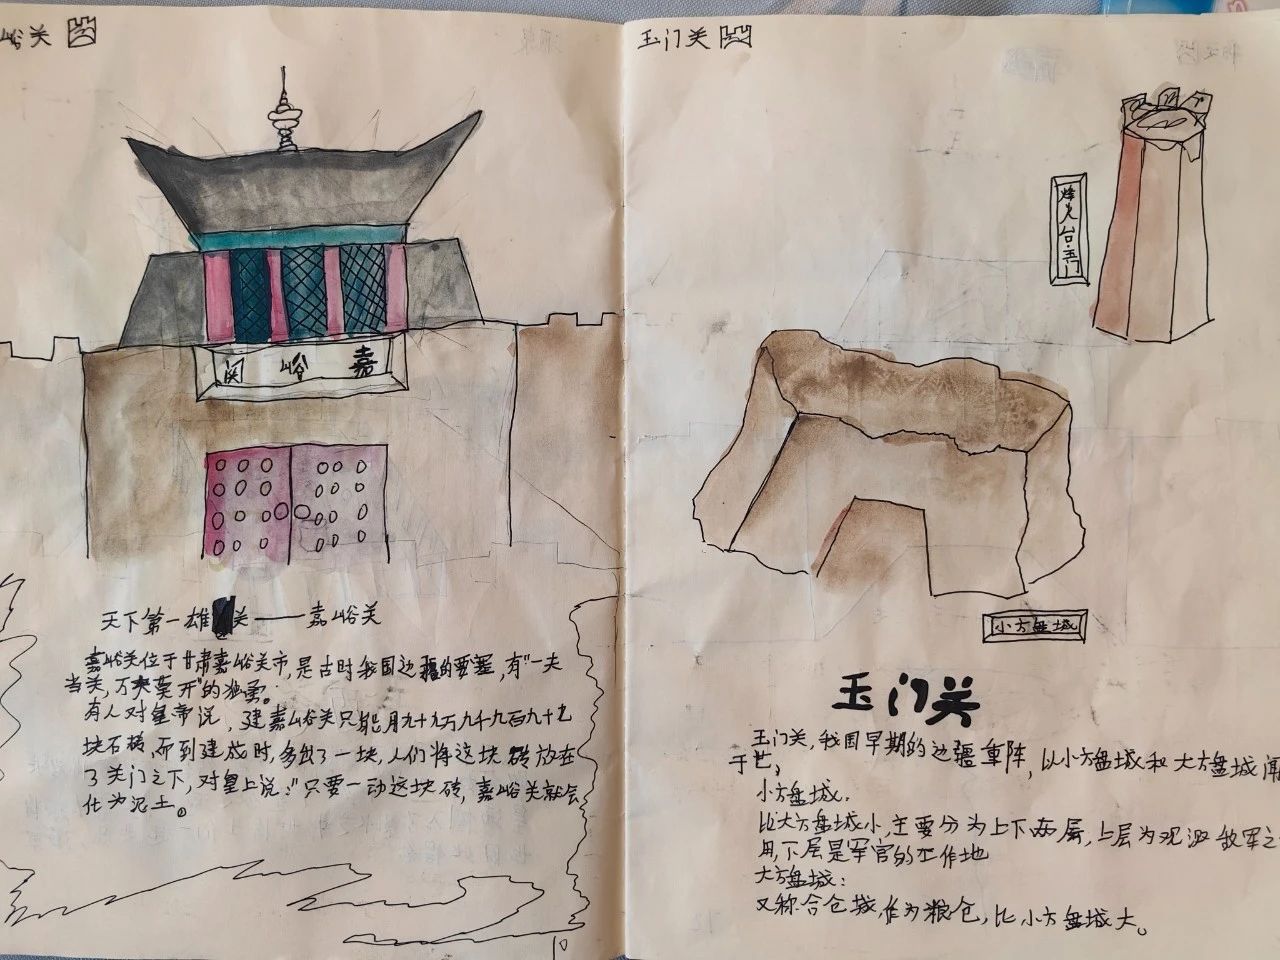 峪关
关 峪 嘉
天下第一雄关——嘉峪关
嘉峪关位于甘肃嘉峪关市,是古时我国边疆的要塞,有"一夫
当关,万夫莫开"的
有人对皇帝说,建嘉峪关只能用九十九万九千九百九十九
块石砖,而到建成时,多出了一块,人们将这块砖放在
了关门之下,对皇上说:"只要一动这块砖,嘉峪关就会
化为泥土。
10
玉门关
烽火台·玉门
小方盘城
玉门关
玉门关,我国早期的边疆重阵,以小方盘城和大方盘城闻
于世,
小方盘城.
比大方盘城小,主要分为上下两层,上层为观测敌军之
用,下层是军官的工作地
大方盘城:
又称合仓城,作为粮仓,比小方盘城大。